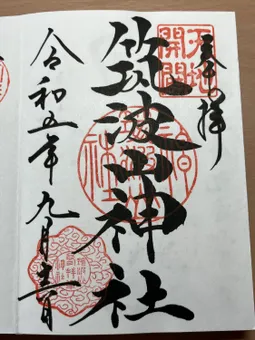 奉拝
天地
開闢
筑波山神社
令和五年九月